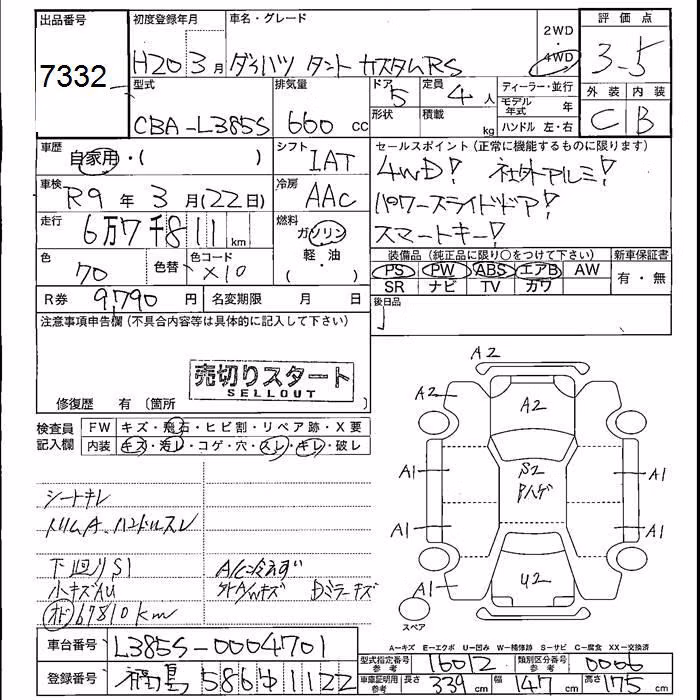 出品番号 初度登録年月 車名・グレード 2WD 評価点
7332 H20 3月 ダイハツ タント カスタムRS 4WD 3.5
型式 排気量 ドア 5 定員 4人 ディーラー・並行 外装 内装
CBA-L385S 660cc 形状 積載 kg モデル年式 年 C B
ハンドル 左・右
車歴 自家用・( ) シフト IAT セールスポイント(正常に機能するものに限ります)
車検 R9年3月(22日) 冷房 AAC 4WD! 社外アルミ!
走行 6万7千811km 燃料 ガソリン パワースライドドア!
軽・油 スマートキー!
色 70 色替 色コード X10 装備品(純正品に限り○をつけて下さい) 新車保証書
PS PW ABS エアB AW 有・無
SR ナビ TV カワ
R券 9,790円 名変期限 月 日 後日品
注意事項申告欄(不具合内容等は具体的に記入して下さい)
売切りスタート
SELLOUT
修復歴 有〔箇所 〕
検査員記入欄 FW キズ・飛石・ヒビ割・リペア跡・X要
内装 キズ・汚レ・コゲ・穴・スレ・キレ・破レ
シートキレ
トリムA、ハンドルスレ
下廻りS1 A/C冷えず
小キズAU Dミラーキズ
オド 67810km
A2
A2 A2
S2
Pハゲ
A1 A1
A1 A1
A1 U2
スペア
A=キズ E=エクボ U=凹み W=補修跡 S=サビ C=腐食 XX=交換済
車台番号 L385S-0004701 型式指定番号参考 16012 類別区分番号参考 0006
登録番号 福島 586 ゆ 1122 車庫証明用参考 長さ 339cm 幅 147cm 高さ 175cm